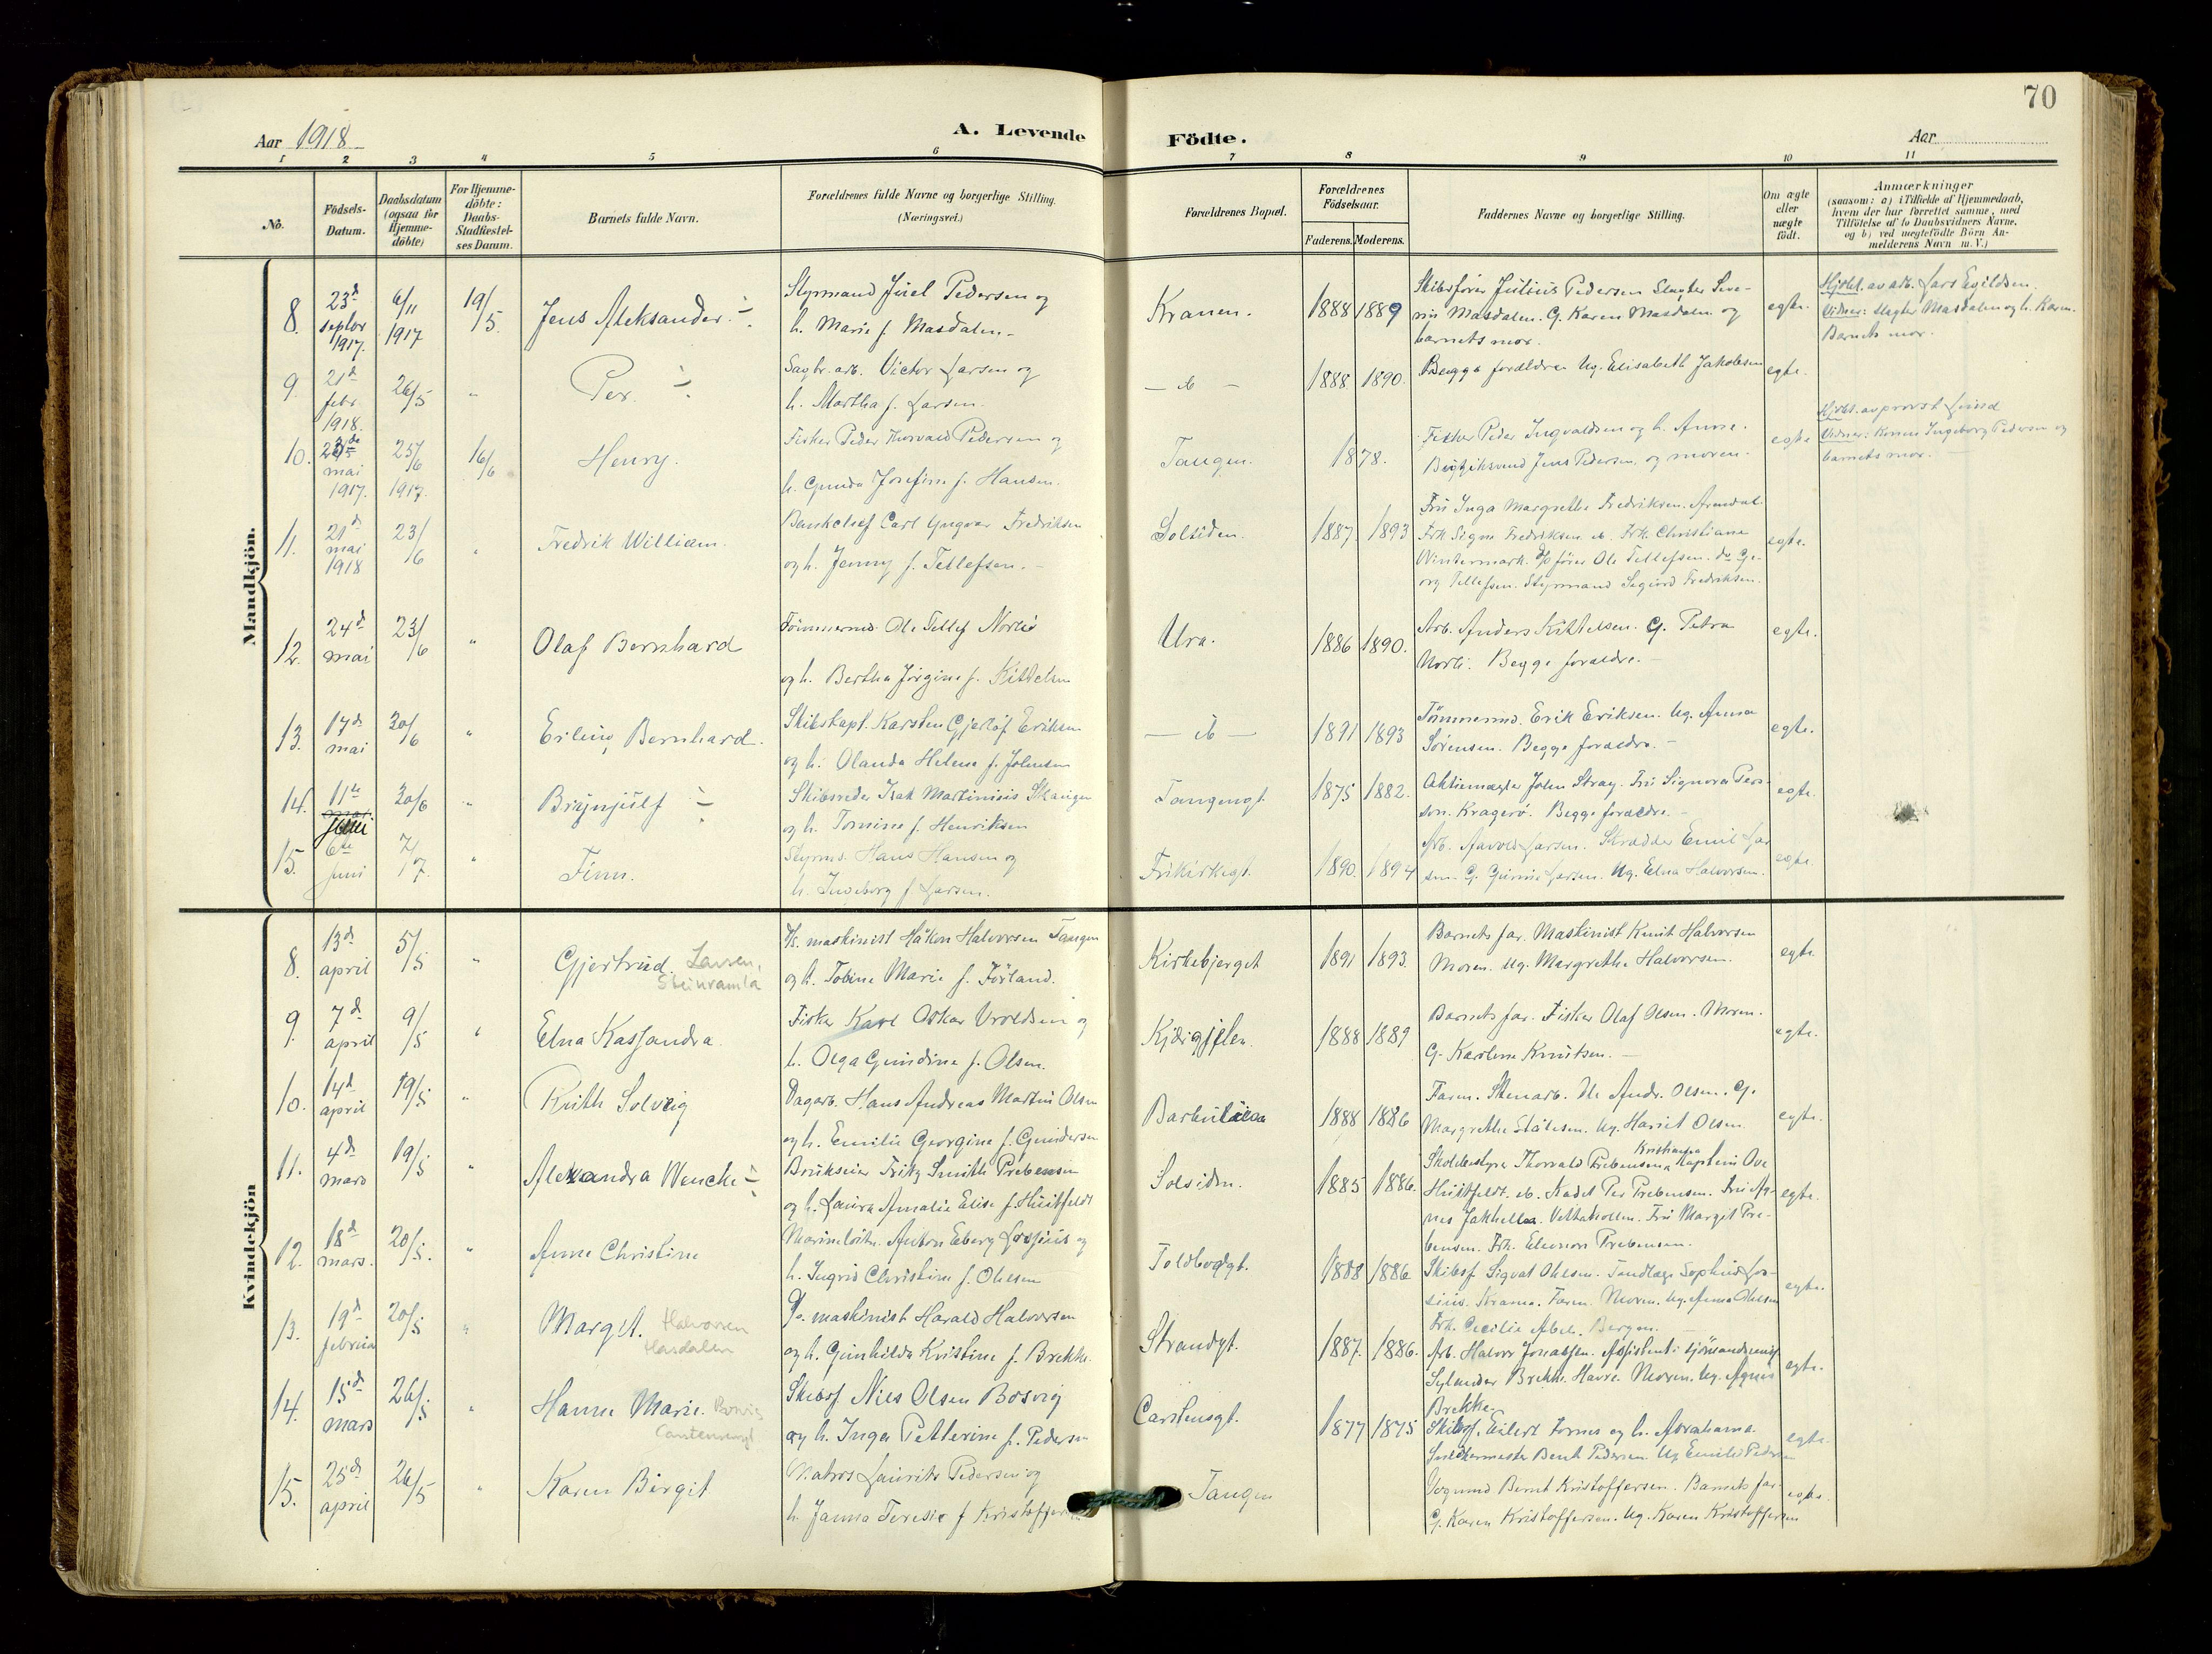 70
Aar 1918
A. Levende Födte.
Aar
1 2 3 4 5 6 7 8 9 10 11
No.
Födsels-Datum.
Daabsdatum (ogsaa for Hjemme-döbte)
For Hjemme-döbte: Daabs-Stadfæstel-ses Datum.
Barnets fulde Navn.
Forældrenes fulde Navne og borgerlige Stilling. (Næringsvei.)
Forældrenes Bopæl.
Forældrenes Födselsaar.
Faderens. Moderens.
Faddernes Navne og borgerlige Stilling.
Om ægte eller uægte födt.
Anmærkninger
(saasom: a) i Tilfælde af Hjemmedaab, hvem der har forrettet samme, med Tilföielse af to Daabsvidners Navne, og b) ved uægtefödte Börn An-melderens Navn m. V.)
Mandkjön.
8. 23d septbr 1917. 6/11 1917 19/5. Jens Aleksander. Styrmand Juel Pedersen og
h. Marie f. Masdalen. Kranen. 1888 1889 Skibsfører Julius Pedersen Slagter Seve-
rin Masdalen. G. Karen Masdalen og
barnets mor. egte. Hjdbt. av arb. Lars Egildsen.
Vidner: slagter Masdalen og h. Karen.
Barnets mor.
9. 21d febr. 1918. 26/5 " Per. Sagbr. arb. Victor Larsen og
h. Martha f. Larsen. 1888. 1890. Begge forældre Ug. Elisabeth Jakobsen egte.
10. mai 1917. 25/6 1917. 16/6 Henry. Fisker Peder Thorvald Pedersen og
h. Gunda Josefine f. Hansen. Tangen. 1878. Fisker Peder Ingvaldsen og h. Anne.
Jens Pedersen, og moren. egte Hjdbt. av provst Lund
Vidner: Konen Ingeborg Pedersen og
barnets mor.
11. 21d mai 1918 23/6 " Fredrik William. Bankchef Carl Yngvar Fredriksen
og h. Jenny f. Tellefsen. Solsiden. 1887. 1893 Fru Inga Margrethe Fredriksen. Arendal.
Frk Signe Fredriksen do. Frk. Christiane
Wintermark. fører Ole Tellefsen. do Ge-
org Tellefsen. Styrmand Sigurd Fredriksen. egte.
12. 24d mai 23/6 " Olaf Bernhard Tömmermd. Ole Tellef Norli
og h. Bertha Jörgine f. Kittelsen Ura. 1886 1890. Arb. Anders Kittelsen. G. Petra
Norli. Begge foraldre. egte.
13. 17d mai 30/6 " Erling Bernhard. Skibskapt. Karsten Gjerlöf Eriksen
og h. Olanda Helene f. Johnsen 1891 1893 Tömmermd. Erik Eriksen. Ug. Anna
Sörensen. Begge foraldre. egte.
14. 11te juni 30/6 " Brynjulf Skibsreder Isak Martinius Skaugen
og h. Tomine f. Henriksen Tangengt. 1875 1882. Aktiemægler John Stray. Fru Signora Pers-
son. Kragerö. Begge foraldre. egte.
15. 6te juni 7/7. " Finn. Styrmd. Hans Hansen og
h. Ingeborg f Larsen. Frikirkegt. 1890. 1894 Arb. Larsen. Skrædder Emil Lar
sen. G. Larsen. Ug. Elna Halvorsen. egte.
Kvindekjön
8. 13d april 5/5 " Gjertrud. Larsen, Steinramla maskinist Håkon Halvorsen Tangen
og h. Tobine Marie f. Förland. Kirkebjerget 1891 1893. Barnets far. Maskinist Knut Halvorsen
Moren. Ug. Margrethe Halvorsen. egte
9. 7d april 9/5 " Elna Kassandra. Fisker Karl Oskar Vroldsen og
h. Olga Gundine f. Olsen. 1888 1889 Barnets far. Fisker Olaf Olsen. Moren.
G. Karoline Knutsen. egte.
10. 14d april 19/5 " Ruth Solveig Dagarb. Hans Andreas Martin Olsen
og h. Emilie Georgine f. Gundersen Barbu 1888 1886 Faren. Stenarb. Ole Andr. Olsen. G.
Margrethe Ståtesen. Ug. Harriet Olsen. egte.
11. 4d mars 19/5 " Alexandra Wencke Brukseier Fritz Smith Prebensen
og h. Laura Amalie Elise f. Huitfeldt Solsiden. 1885 1886. Kristiania
Skolebestyrer Thorvald Prebensen. Kaptein Ove
Huitfeldt. do. Kadet Per Prebensen. Fru Ag-
nes Jakhelln. Vettakollen. Fru Margit Pre-
bensen. Frk. Eleonore Prebensen. egte.
12. 18d mars. 20/5. " Anne Christine Marinelöitn. Anton Eberg Lossius og
h. Ingrid Christine f. Ohlsen Toldbodgt. 1888 1886 Skibsf. Sigvat Ohlsen. Tandlæge Sophus Los-
sius. Faren. Moren. Ug. Anna Ohlsen
Frk. Cecilie Abel. Bergen. egte.
13. 19d februar 20/5 " Margit. Halvorsen Hasdalen maskinist Harald Halvorsen
og h. Gunhilda Kristine f. Brekke. Strandgt. 1887. 1886. Arb. Halvor Jonassen. Assistent i
Brekke. Havre. Moren. Ug. Agnes
Brekke. egte.
14. 15d mars 26/5 " Hanne Marie. Bosvig Carstensengt Skibsf. Niels Olsen Bosvig
og h. Inga Petterine f. Pedersen Carstensgt. 1877 1875 Skibsf. Eilert Tornes og h. Abrahama.
Bent Pedersen Ug Emilie Pedersen egte.
15. 25d april 26/5 " Karen Birgit Matros Laurits Pedersen og
h. Janna Teresie f Kristoffersen Tangen Bernt Kristoffersen. Barnets far
G. Karen Kristoffersen. Ug. Karen Kristoffersen egte.